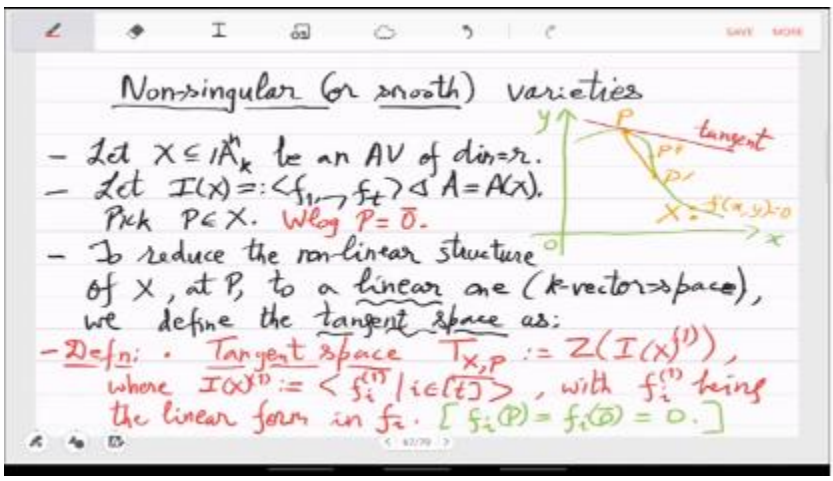 SAVE MORE
Non-singular (or smooth) varieties
- Let X ⊆ 𝔸ⁿ_k be an AV of dim=r.
- Let I(X) =: <f₁,..., f_t> ⊲ A = A(X).
Pick P ∈ X. Wlog P = 0̄.
- To reduce the non-linear structure
of X, at P, to a linear one (k-vector-space),
we define the tangent space as:
- Defn: · Tangent space T_{X,P} := Z(I(X)^{(1)}),
where I(X)^{(1)} := <f_i^{(1)} | i∈[t]>, with f_i^{(1)} being
the linear form in f_i. [f_i(P) = f_i(0̄) = 0.]
y
P
tangent
P''
P'
X: f(x,y)=0
0
x
67/70